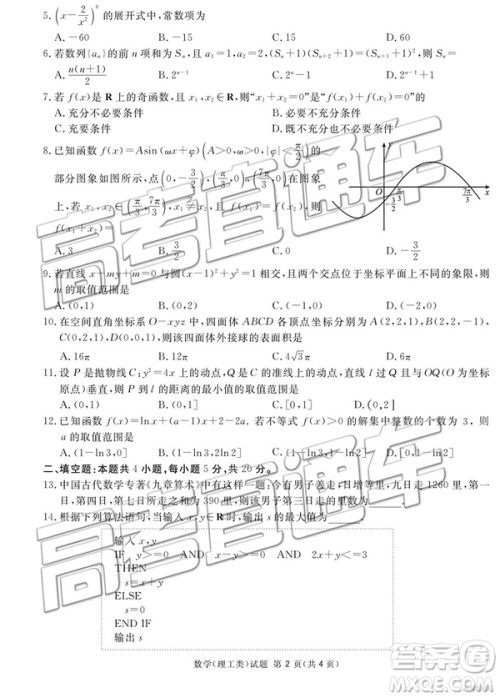 5. (x－2/x²)⁶ 的展开式中,常数项为
A. －60 B. －15 C. 15 D. 60
6. 若数列{aₙ}的前 n 项和为 Sₙ,且 a₁=1,a₂=2,(Sₙ+1)(Sₙ₊₂+1)=(Sₙ₊₁+1)²,则 Sₙ=
A. n(n+1)/2 B. 2ⁿ⁻¹ C. 2ⁿ－1 D. 2ⁿ⁻¹+1
7. 若 f(x)是 R 上的奇函数,且 x₁,x₂∈R,则“x₁+x₂=0”是“f(x₁)+f(x₂)=0”的
A. 充分不必要条件 B. 必要不充分条件
C. 充要条件 D. 既不充分也不必要条件
8. 已知函数 f(x)=Asin(ωx+φ)(A>0,ω>0,|φ|<π/2)的
部分图象如图所示,点(0,－3/2),(π/3,0),(7π/3,0)在图象
上,若 x₁,x₂∈(π/3,7π/3),x₁≠x₂,且 f(x₁)=f(x₂),则 f(x₁
+x₂)=
A. 3 B. 3/2 C. 0 D. －3/2
y
O
π/3
7π/3
x
－3/2
9. 若直线 x－my+m=0 与圆(x－1)²+y²=1 相交,且两个交点位于坐标平面上不同的象限,则
m 的取值范围是
A. (0,1) B. (0,2) C. (－1,0) D. (－2,0)
10. 在空间直角坐标系 O－xyz 中,四面体 ABCD 各顶点坐标分别为 A(2,2,1),B(2,2,－1),
C(0,2,1),D(0,0,1),则该四面体外接球的表面积是
A. 16π B. 12π C. 4√3π D. 6π
11. 设 P 是抛物线 C:y²=4x 上的动点,Q 是直线 l 过点 且与直线 OQ(O 为坐标
原点)垂直,则 P 到 l 的距离的最小值的取值范围是
A. (0,1) B. (0,1] C. [0,1] D. (0,2]
12. 已知函数 f(x)=lnx+(a－1)x+2－2a. 若不等式 f(x)>0 的解集中整数的个数为 3,则
a 的取值范围是
A. (1－ln3,0] B. (1－ln3,2ln2] C. (1－ln3,1－ln2] D. [0,1－ln2]
二、填空题:本题共 4 小题,每小题 5 分,共 20 分。
13. 中国古代数学专著《九章算术》中有这样一题:今有男子善走,日增等里,九日走 1260 里,第
一日、第四日、第七日所走之和为 390 里,则该男子第三日走的里数为
14. 根据下列算法语句,当输入 x,y∈R 时,输出 s 的最大值为
输入 x,y
IF x>=0 AND y>=0 AND 2x+y<=3
THEN
s=x+y
ELSE
s=0
END IF
输出 s
数学(理工类)试题 第 2 页(共 4 页)
高考直通车